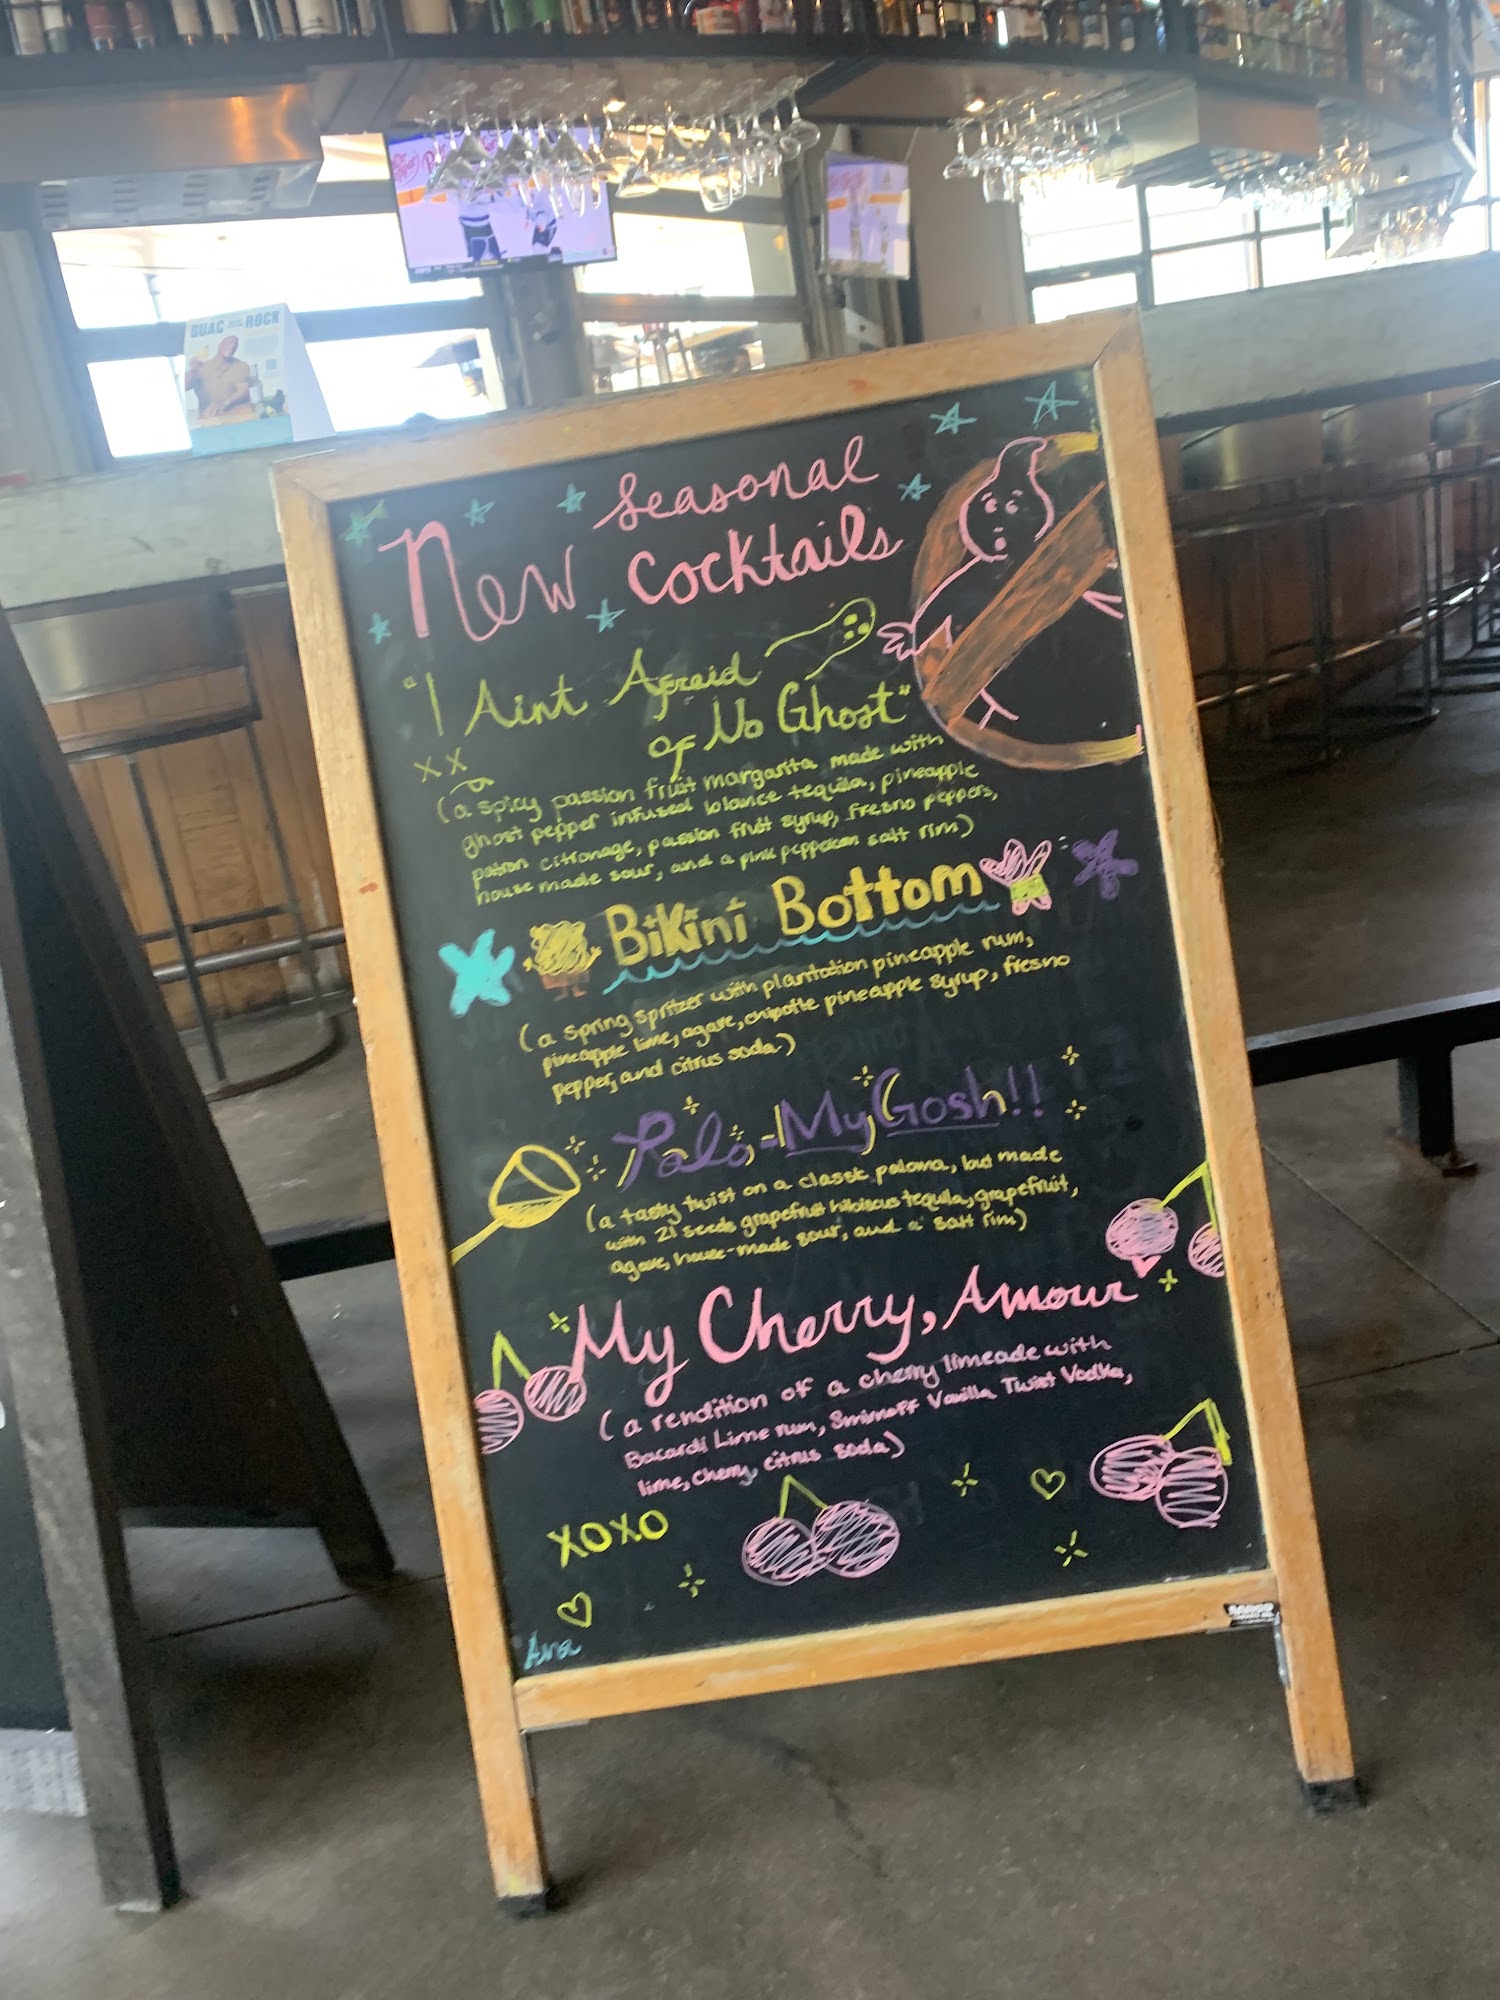 GUAC ROCK
New Seasonal
Cocktails
"I Aint Afraid
of No Ghost"
XX
(a spicy passion fruit margarita made with
ghost pepper infused lolance tequila, pineapple
patron citronage, passion fruit syrup, fresno peppers,
house made sour, and a pink peppercorn salt rim)
Bikini Bottom
(a spring spritzer with plantation pineapple rum,
pineapple lime, agave, chipotle pineapple syrup, fresno
pepper, and citrus soda.)
Palo-My Gosh!!
(a tasty twist on a classic paloma, but made
with 21 seeds grapefruit hibiscus tequila, grapefruit,
agave, house-made sour, and a salt rim)
My Cherry, Amour
(a rendition of a cherry limeade with
Bacardi Lime rum, Smirnoff Vanilla Twist Vodka,
lime, cherry, citrus soda)
XOXO
Ana